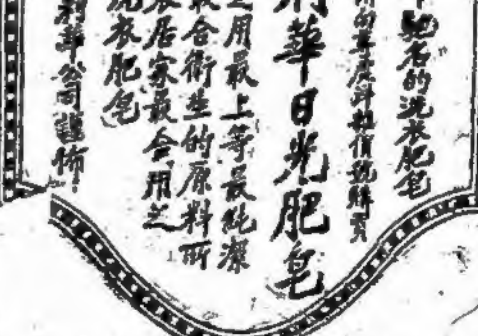 馳名的洗衣肥皂
購買
利華日光肥皂
用最上等最純潔
最合衛生的原料所
居家最合用之
洗衣肥皂
利華公司謹佈